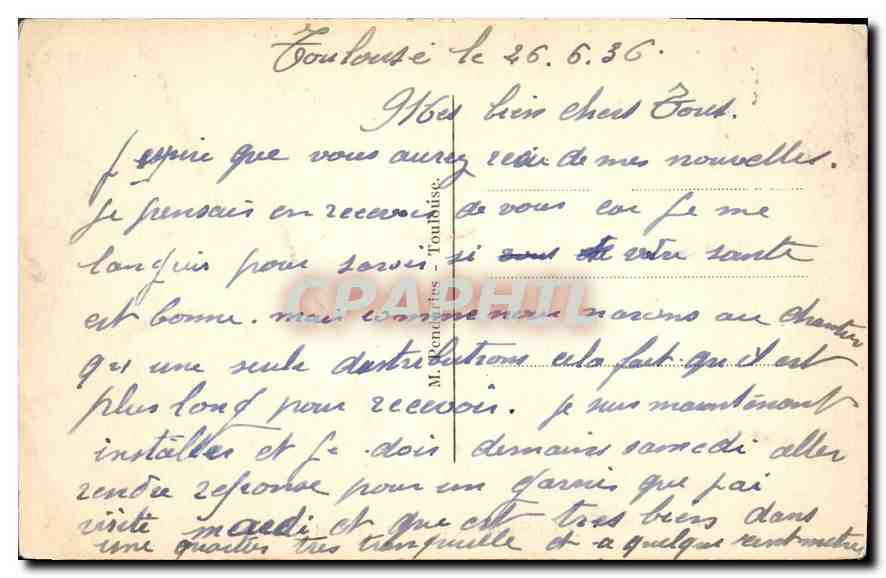 Toulouse le 26.6.36.
Mes bien chers Tous.
J espere que vous aurez recu de mes nouvelles.
Je pensais en recevoir de vous car Je me
languis pour savoir si vous de votre santé
est bonne. mais comme nous navons au chantier
qu une seule distributions cela fait qu il est
plus long pour recevoir. Je suis maintenant
installer et Je dois demain samedi aller
rendre reponse pour un garnis que j'ai
visité mardi et que est tres bien dans
une quartier tres tranquille et a quelque cent metres
M. Pendaries - Toulouse.
CPAPHIL